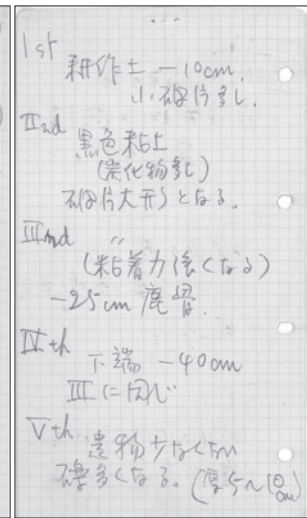 1st
耕作土 -10cm.
小破片多し.
IInd 黒色粘土
(炭化物多し)
破片大形となる.
IIInd 〃
(粘着力強くなる)
-25cm 鹿骨.
IVth 下端 -40cm
IIIに同じ
Vth 遺物少なく
礫多くなる. (厚5〜10cm)